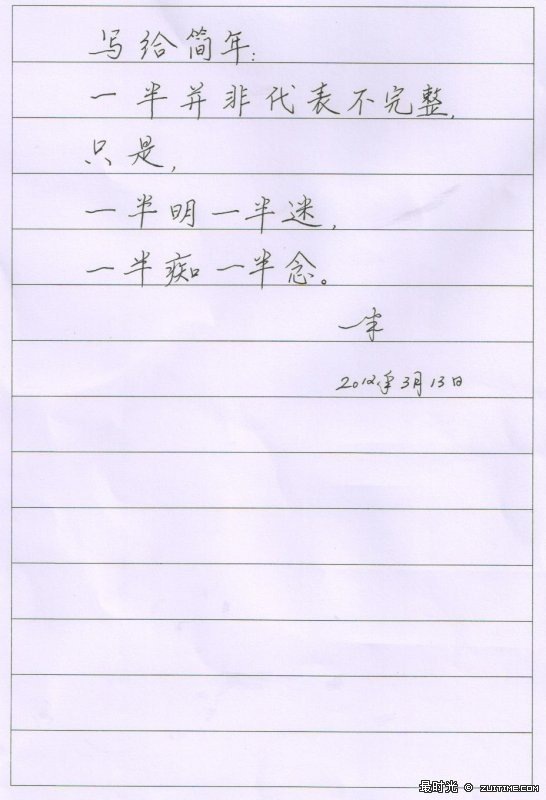 写给简年：
一半并非代表不完整，
只是，
一半明一半迷，
一半痴一半念。
一半
2012年3月13日
最时光 © ZUITIME.COM